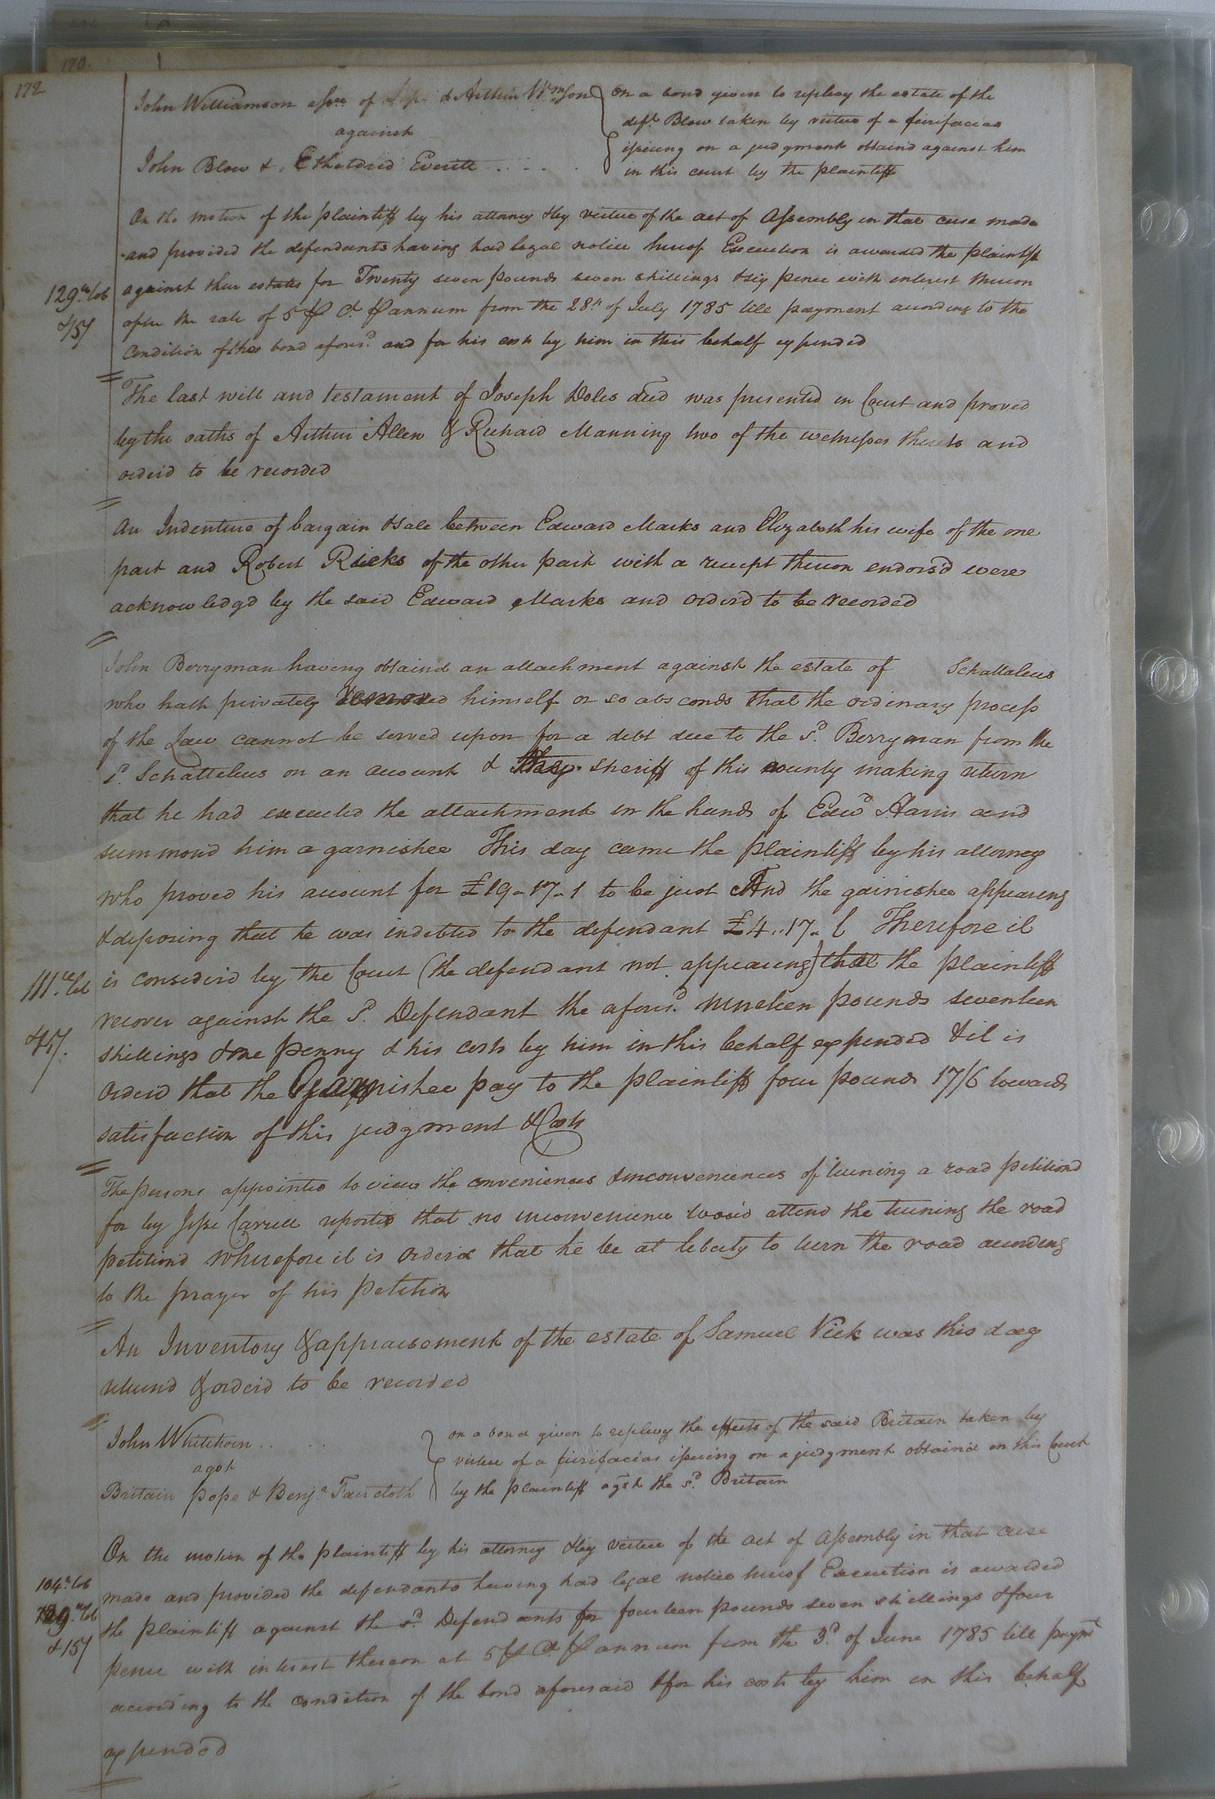 120.
172
John Williamson assee of & Arthur Wmson
against
John Blow & Etheldred Everitt
on a bond given to replevy the estate of the
deft Blow taken by virtue of a fierifacias
issuing on a judgment obtaind against him
in this court by the plaintiff
On the motion of the plaintiff by his attorney & by virtue of the act of Assembly in that case made
and provided the defendants having had legal notice hereof Execution is awarded the plaintiff
against their estates for Twenty seven pounds seven shillings & six pence with interest thereon
after the rate of 5 ⅌ Ct ⅌ annum from the 28th of July 1785 till payment according to the
Condition of the bond aforesd. and for his costs by him in this behalf expended
129 lb tob
& 15/
The last will and testament of Joseph Doles decd was presented in Court and proved
by the oaths of Arthur Allen & Richard Manning two of the witnesses thereto and
orderd to be recorded
An Indenture of bargain & sale between Edward Marks and Elizabeth his wife of the one
part and Robert Ricks of the other part with a receipt thereon endorsd were
acknowledgd by the said Edward Marks and orderd to be recorded
John Berryman having obtaind an attachment against the estate of Schattaleus
who hath privately removed himself or so absconds that the ordinary process
of the Law cannot be served upon for a debt due to the sd. Berryman from the
sd. Schatteleus on an account & the sheriff of this county making return
that he had executed the attachment in the hands of Edwd Harris and
summond him a garnishee This day came the plaintiff by his attorney
who proved his account for £19-17-1 to be just And the garnishee appearing
& deposing that he was indebted to the defendant £4..17-6 Therefore it
is considerd by the Court (the defendant not appearing) that the plaintiff
recover against the sd. Defendant the aforesd. Nineteen pounds seventeen
shillings & one penny & his costs by him in this behalf expended & it is
orderd that the Garnishee pay to the plaintiff four pounds 17/6 towards
satisfaction of this judgment & Costs
111 lb tob
& 15/.
The persons appointed to view the conveniences & inconveniences of turning a road petitiond
for by Jesse Carrell reported that no inconvenience woud attend the turning the road
petitiond Wherefore it is orderd that he be at liberty to turn the road according
to the prayer of his petition
An Inventory & appraisement of the estate of Samuel Vick was this day
returnd & orderd to be recorded
John Whitehorn
agst
Britain pope & Benja Faircloth
on a bond given to replevy the effects of the said Britain taken by
virtue of a fierifacias issuing on a judgment obtaind in this Court
by the plaintiff agst the sd. Britain
On the motion of the plaintiff by his attorney & by virtue of the act of Assembly in that case
made and provided the defendants having had legal notice hereof Execution is awarded
the plaintiff against the sd Defendants for fourteen pounds seven shillings & four
pence with interest thereon at 5 ⅌ Ct ⅌ annum from the 3d. of June 1785 till paymt
according to the condition of the bond aforesaid & for his costs by him in this behalf
expended
104 lb tob
129 lb tob
& 15/